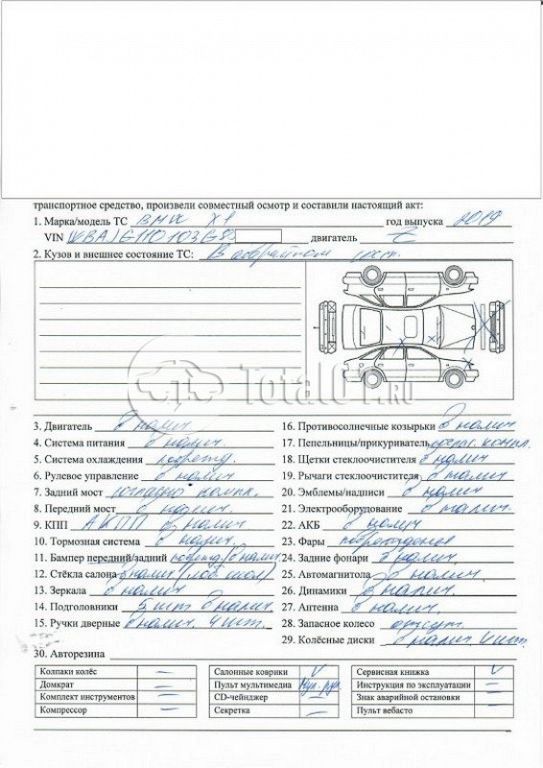 транспортное средство, произвели совместный осмотр и составили настоящий акт:
1. Марка/модель ТС BMW X1 год выпуска 2019
VIN двигатель
2. Кузов и внешнее состояние ТС: В аварийном сост.
Total01.RU
3. Двигатель В налич
4. Система питания В налич.
5. Система охлаждения поврежд.
6. Рулевое управление В налич
7. Задний мост согласно компл.
8. Передний мост В налич.
9. КПП АКПП В налич
10. Тормозная система В налич.
11. Бампер передний/задний поврежд/В налич
12. Стёкла салона В налич (лоб.
13. Зеркала В налич
14. Подголовники 5 шт В налич.
15. Ручки дверные В налич. 4 шт.
16. Противосолнечные козырьки В налич
17. Пепельницы/прикуриватель компл.
18. Щетки стеклоочистителя В налич
19. Рычаги стеклоочистителя В налич
20. Эмблемы/надписи В налич
21. Электрооборудование В налич.
22. АКБ В налич
23. Фары повреждения
24. Задние фонари В налич.
25. Автомагнитола В налич.
26. Динамики В налич
27. Антенна В налич
28. Запасное колесо отсут.
29. Колёсные диски В налич 4 шт.
30. Авторезина
Колпаки колёс —
Домкрат —
Комплект инструментов —
Компрессор —
Салонные коврики V
Пульт мультимедиа
CD-чейнджер —
Секретка —
Сервисная книжка V
Инструкция по эксплуатации —
Знак аварийной остановки —
Пульт вебасто —